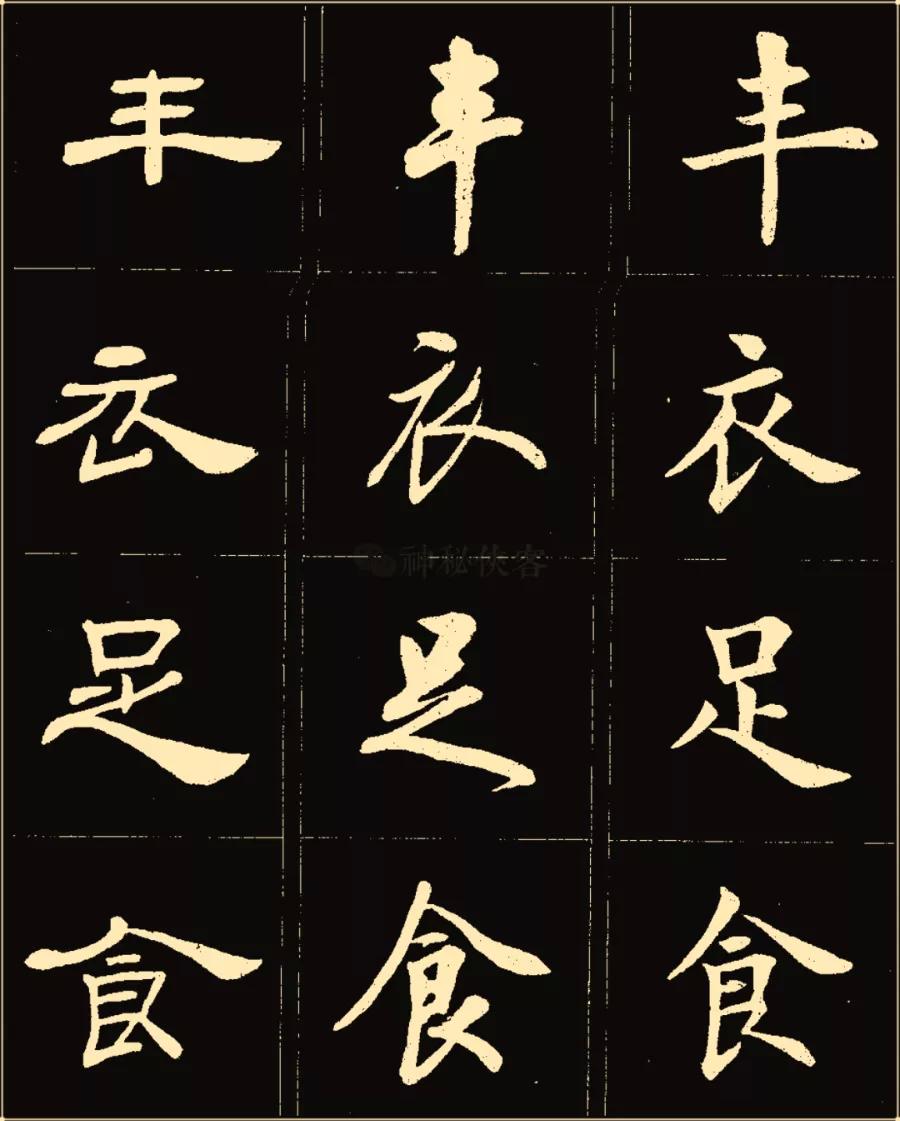 丰 丰 丰
衣 衣 衣
足 足 足
食 食 食
神秘侠客